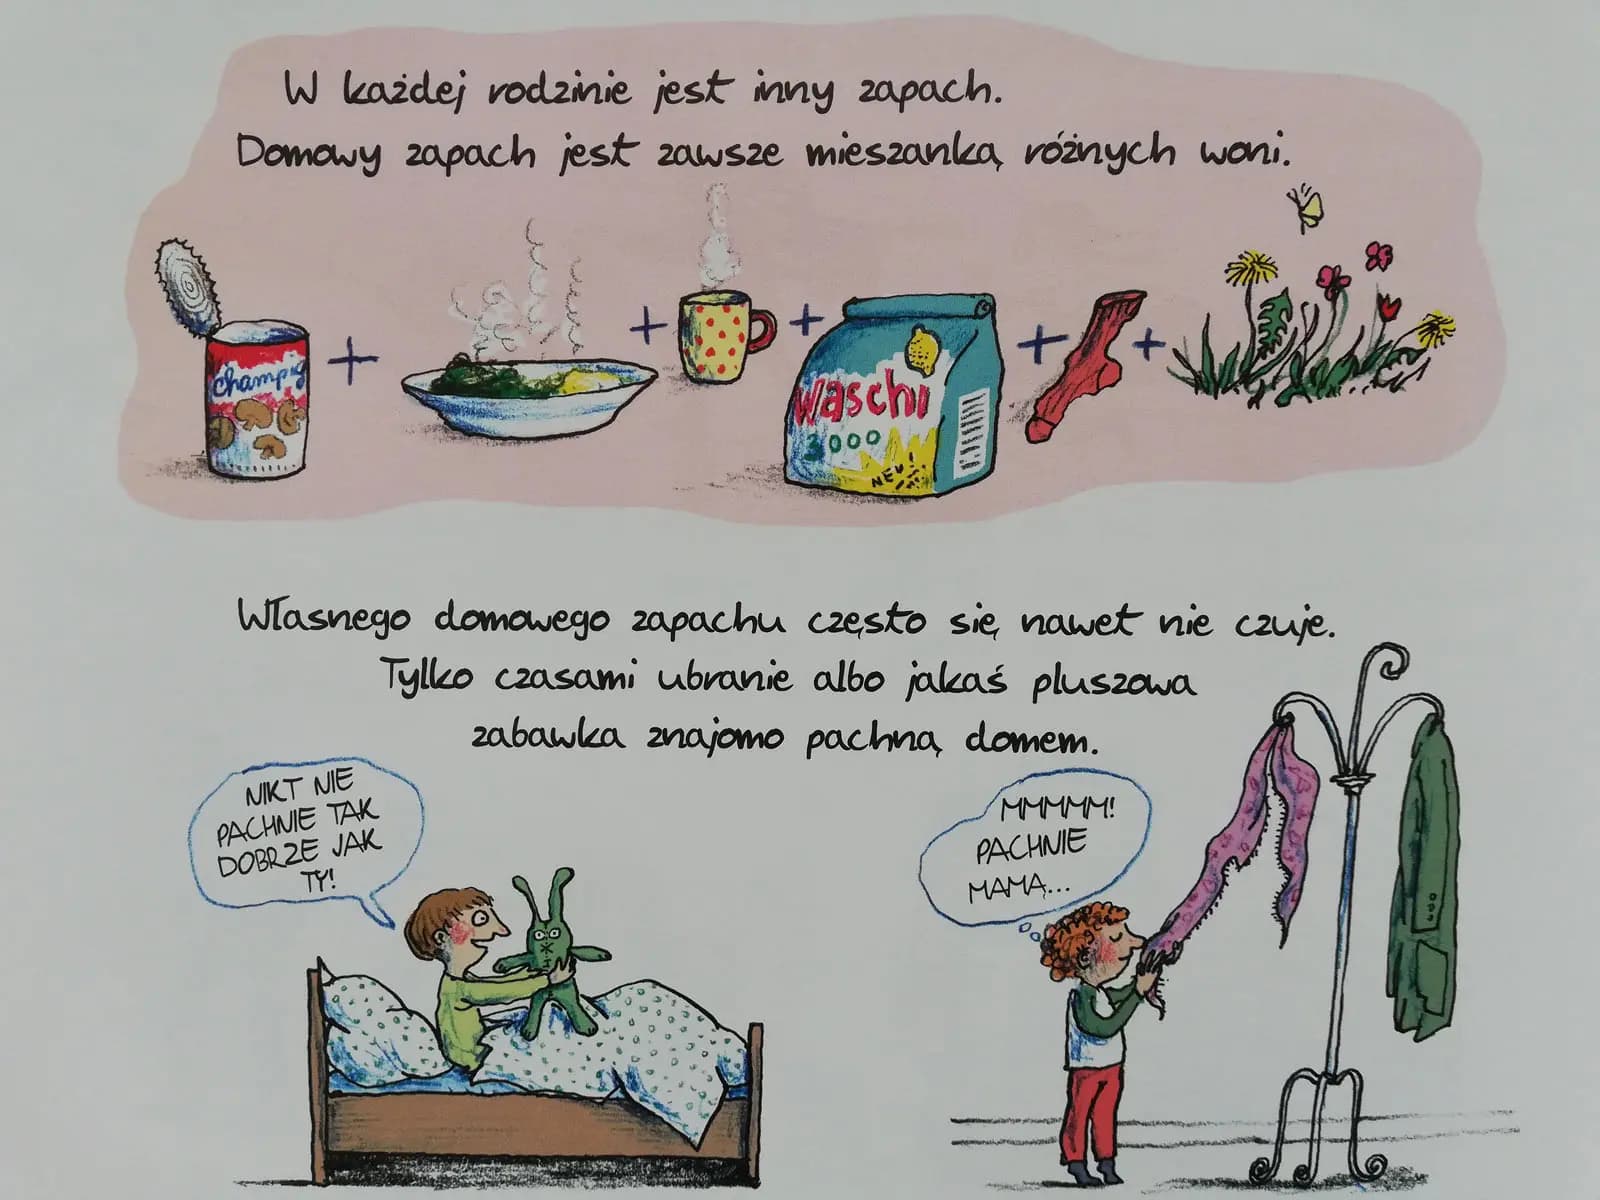 W każdej rodzinie jest inny zapach.
Domowy zapach jest zawsze mieszanką różnych woni.
Champig
Waschi
3000
NEU!
Własnego domowego zapachu często się nawet nie czuje.
Tylko czasami ubranie albo jakaś pluszowa
zabawka znajomo pachną domem.
NIKT NIE
PACHNIE TAK
DOBRZE JAK
TY!
MMMMM!
PACHNIE
MAMĄ...